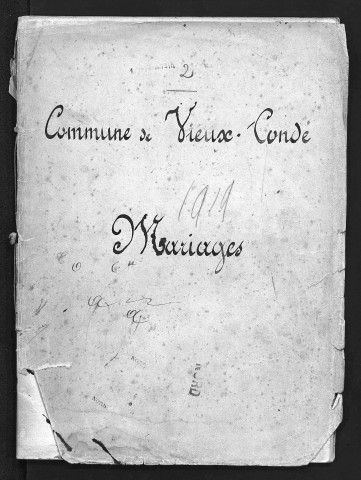 2
Commune de Vieux-Condé
1919
Mariages
NORD